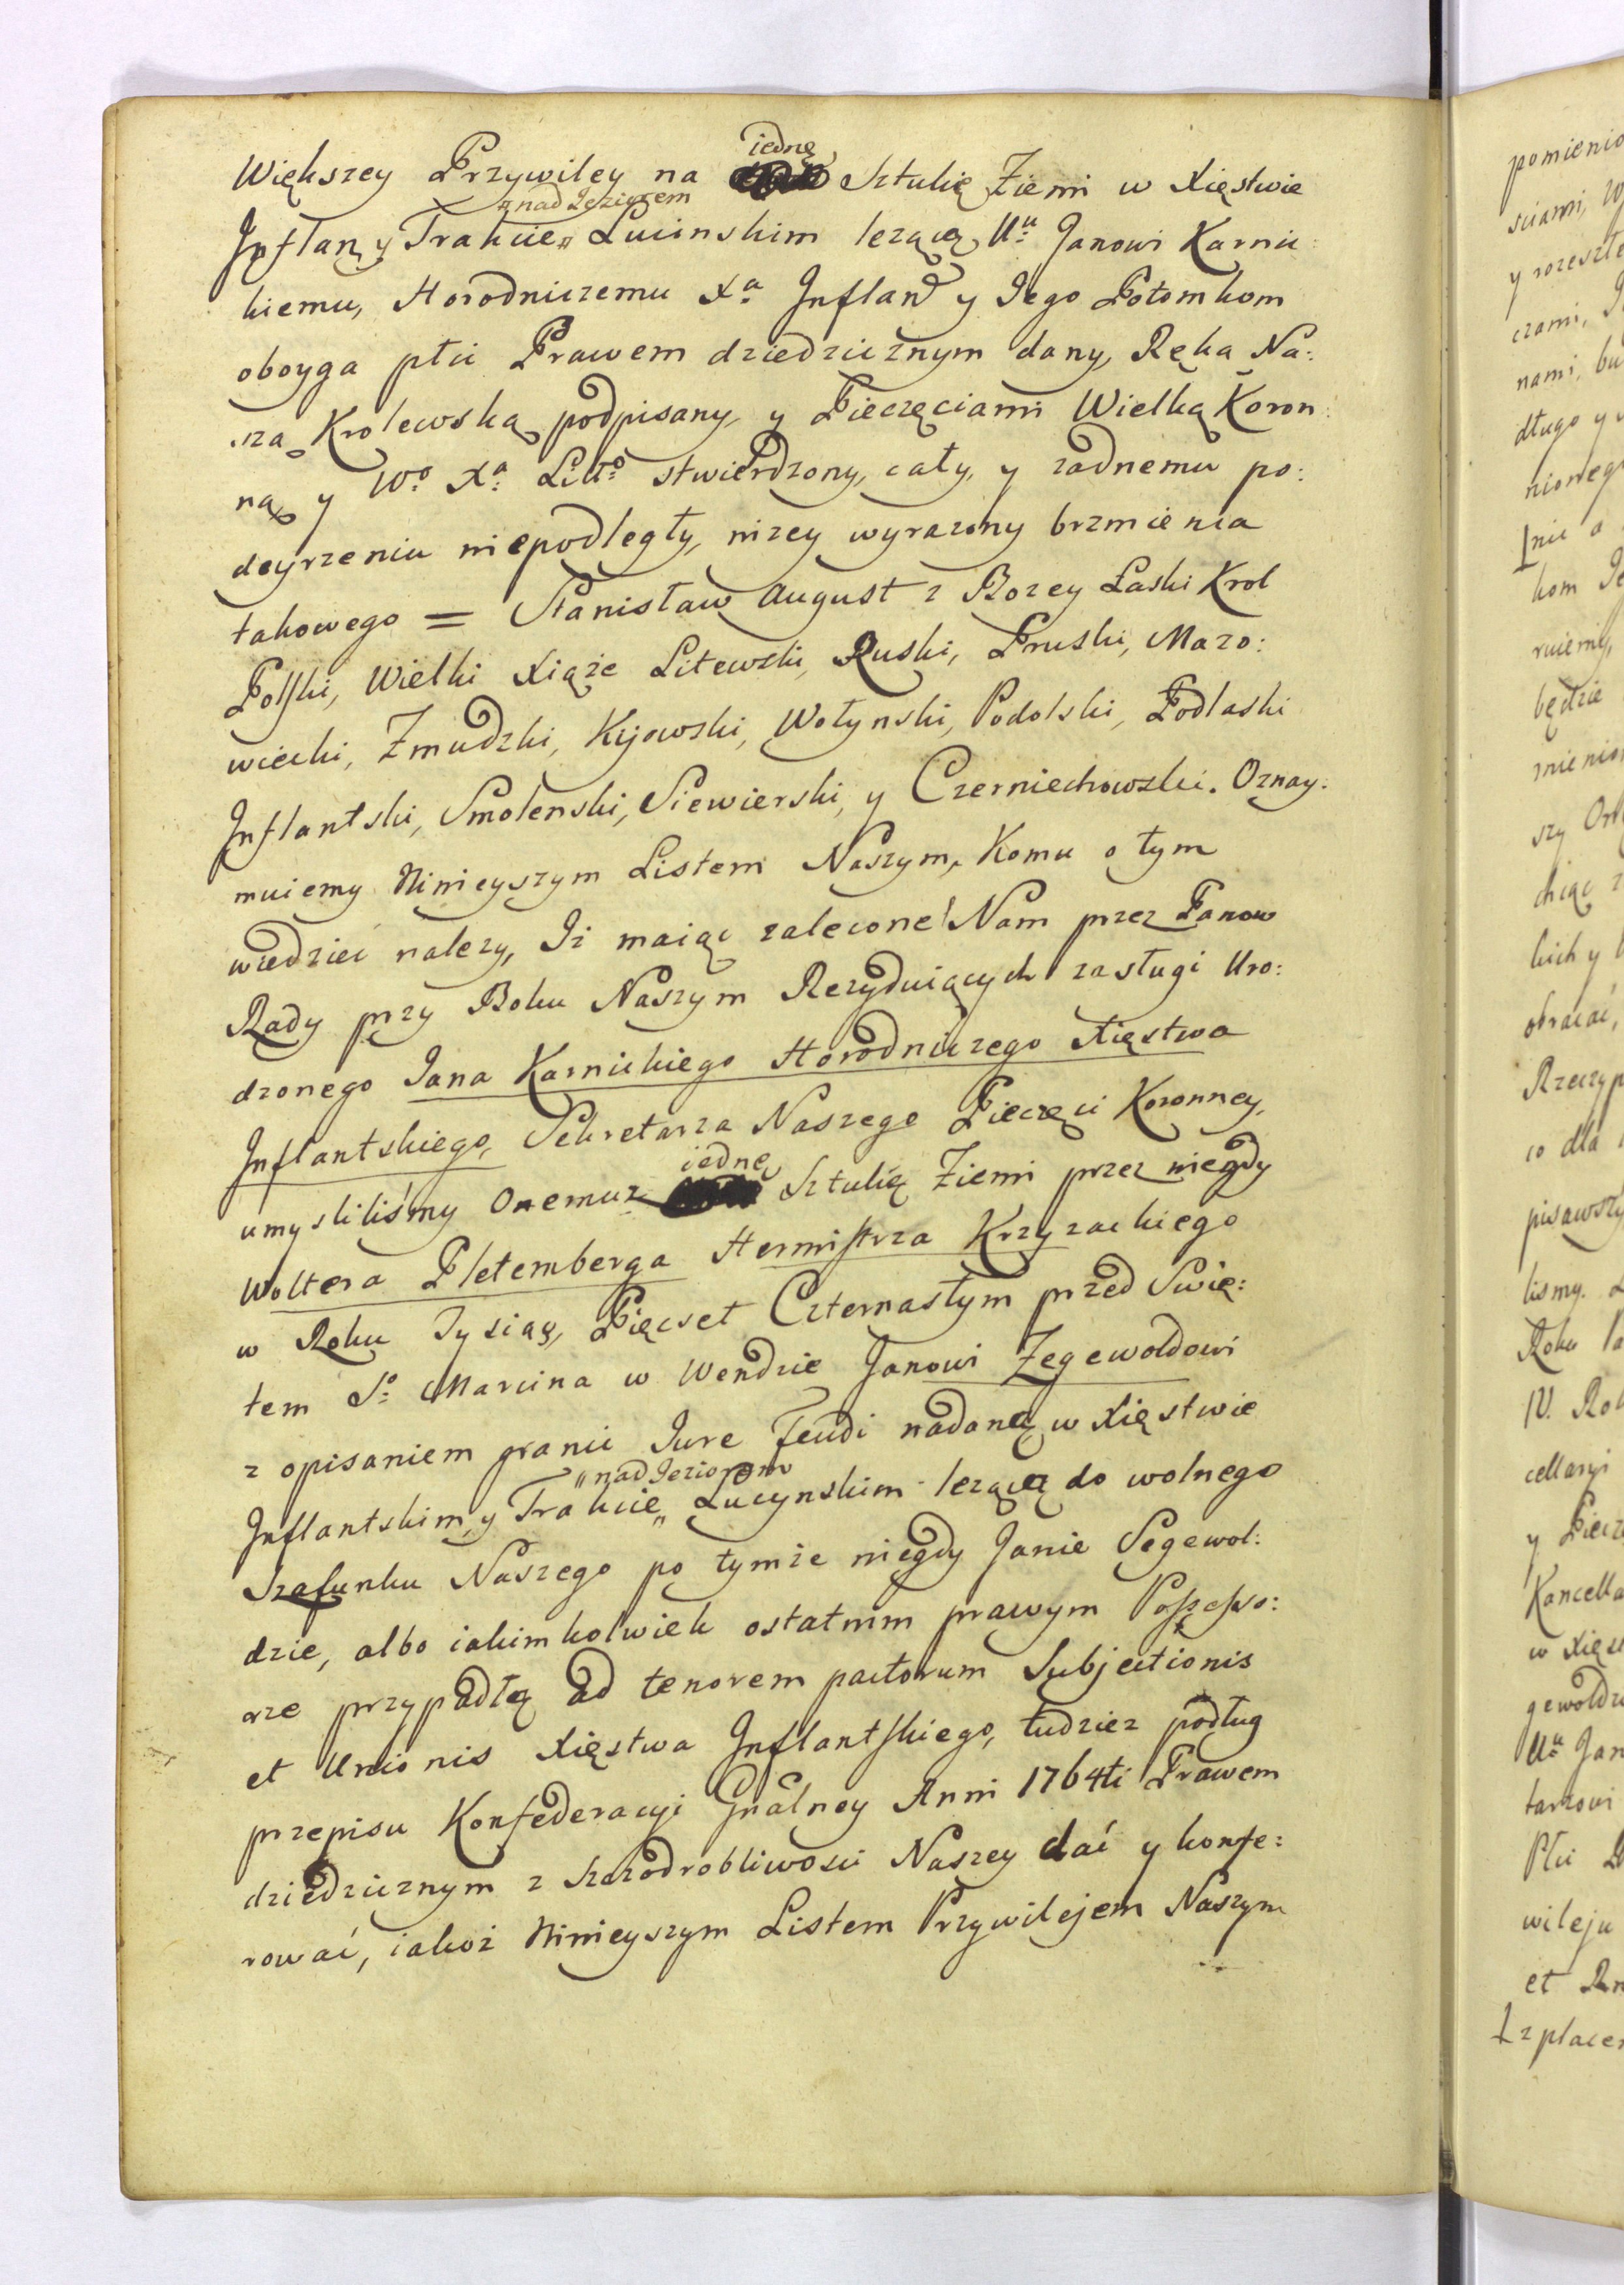 Większey Przywiley na iednę Sztukię Ziemi w Xięstwie
Inflan y Trakcie „nad Jeziorem Lucinskim lezącą Uu Janowi Karnic:
kiemu, Horodniczemu Xa Infland y Jego Potomkom
oboyga płci Prawem dziedzicznym dany, Ręką Na:
szą Krolewską podpisany, y Pieczęciami Wielką Koron:
ną y Wo Xa Litto stwierdzony, cały, y zadnemu po:
deyrzeniu niepodległy, nizey wyrazony brzmienia
takowego = Stanisław August z Bozey Łaski Krol
Polski, Wielki Xiąże Litewski, Ruski, Pruski, Mazo:
wiecki, Zmudzki, Kijowski, Wołynski, Podolski, Podlaski
Inflantski, Smolenski, Siewierski, y Czerniechowski. Oznay:
muiemy Ninieyszym Listem Naszym, Komu o tym
wiedzieć nalezy, Iz maiąc zalecone Nam przez Panow
Rady przy Boku Naszym Rezyduiących zasługi Uro:
dzonego Jana Karnickiego Horodniczego Xięstwa
Inflantskiego, Sekretarza Naszego Pieczęci Koronney,
umysliliśmy Onemuz iednę Sztukię Ziemi przez niegdy
Woltera Pletemberga Hermistrza Krzyzackiego
w Roku Tysiąc, Pięcset Czternastym przed Swię:
tem So Marcina w Wendzie Janowi Zegewoldowi
z opisaniem granic Jure Feudi nadaną w Xięstwie
Inflantskim, y Trakcie „nad Jeziorem Lucynskim lezącą do wolnego
Szafunku Naszego po tymże niegdy Janie Segewol:
dzie, albo iakimkolwiek ostatnim prawym Possesso:
rze przypadłą ad tenorem pactorum Subjectionis
et Unionis Xięstwa Inflantskiego, tudziez podług
przepisu Konfederacyi Gnalney Anni 1764ti Prawem
dziedzicznym z Szczodrobliwosci Naszey dać y konfe:
rować, iakoż Ninieyszym Listem Przywilejem Naszym